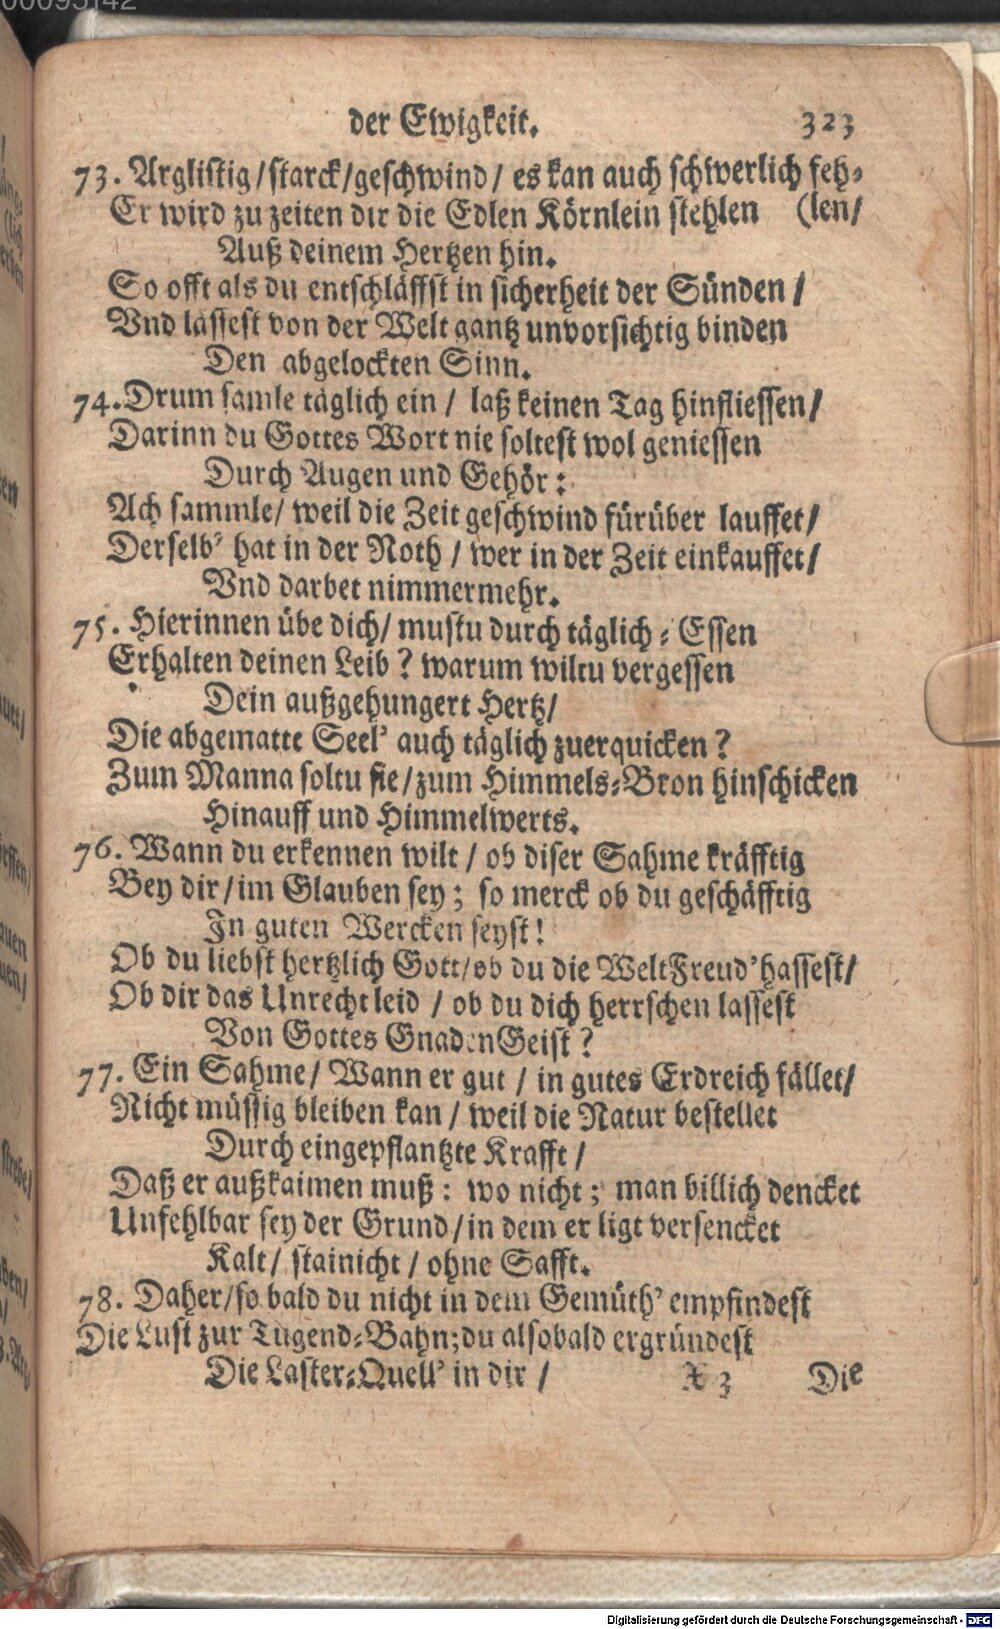 der Ewigkeit. 323
73. Arglistig/starck/geschwind/ es kan auch schwerlich feh-
Er wird zu zeiten dir die Edlen Körnlein stehlen (len/
Auß deinem Hertzen hin.
So offt als du entschläffst in sicherheit der Sünden/
Vnd lassest von der Welt gantz unvorsichtig binden
Den abgelockten Sinn.
74. Drum samle täglich ein/ laß keinen Tag hinfliessen/
Darinn du Gottes Wort nie soltest wol geniessen
Durch Augen und Gehör:
Ach sammle/ weil die Zeit geschwind fürüber lauffet/
Derselb' hat in der Noth/ wer in der Zeit einkauffet/
Vnd darbet nimmermehr.
75. Hierinnen übe dich/ mustu durch täglich-Essen
Erhalten deinen Leib? warum wiltu vergessen
Dein außgehungert Hertz/
Die abgematte Seel' auch täglich zuerquicken?
Zum Manna soltu sie/zum Himmels-Bron hinschicken
Hinauff und Himmelwerts.
76. Wann du erkennen wilt/ ob diser Sahme kräfftig
Bey dir/im Glauben sey; so merck ob du geschäfftig
In guten Wercken seyst!
Ob du liebst hertzlich Gott/ob du die WeltFreud' hassest/
Ob dir das Unrecht leid/ ob du dich herrschen lassest
Von Gottes GnadenGeist?
77. Ein Sahme/ Wann er gut/ in gutes Erdreich fället/
Nicht müssig bleiben kan/ weil die Natur bestellet
Durch eingepflantzte Krafft/
Daß er außkaimen muß: wo nicht; man billich dencket
Unfehlbar sey der Grund/in dem er ligt versencket
Kalt/ stainicht/ ohne Safft.
78. Daher/so bald du nicht in dem Gemüth' empfindest
Die Lust zur Tugend-Bahn;du alsobald ergründest
Die Laster-Quell' in dir/
X 3 Die
Digitalisierung gefördert durch die Deutsche Forschungsgemeinschaft - DFG